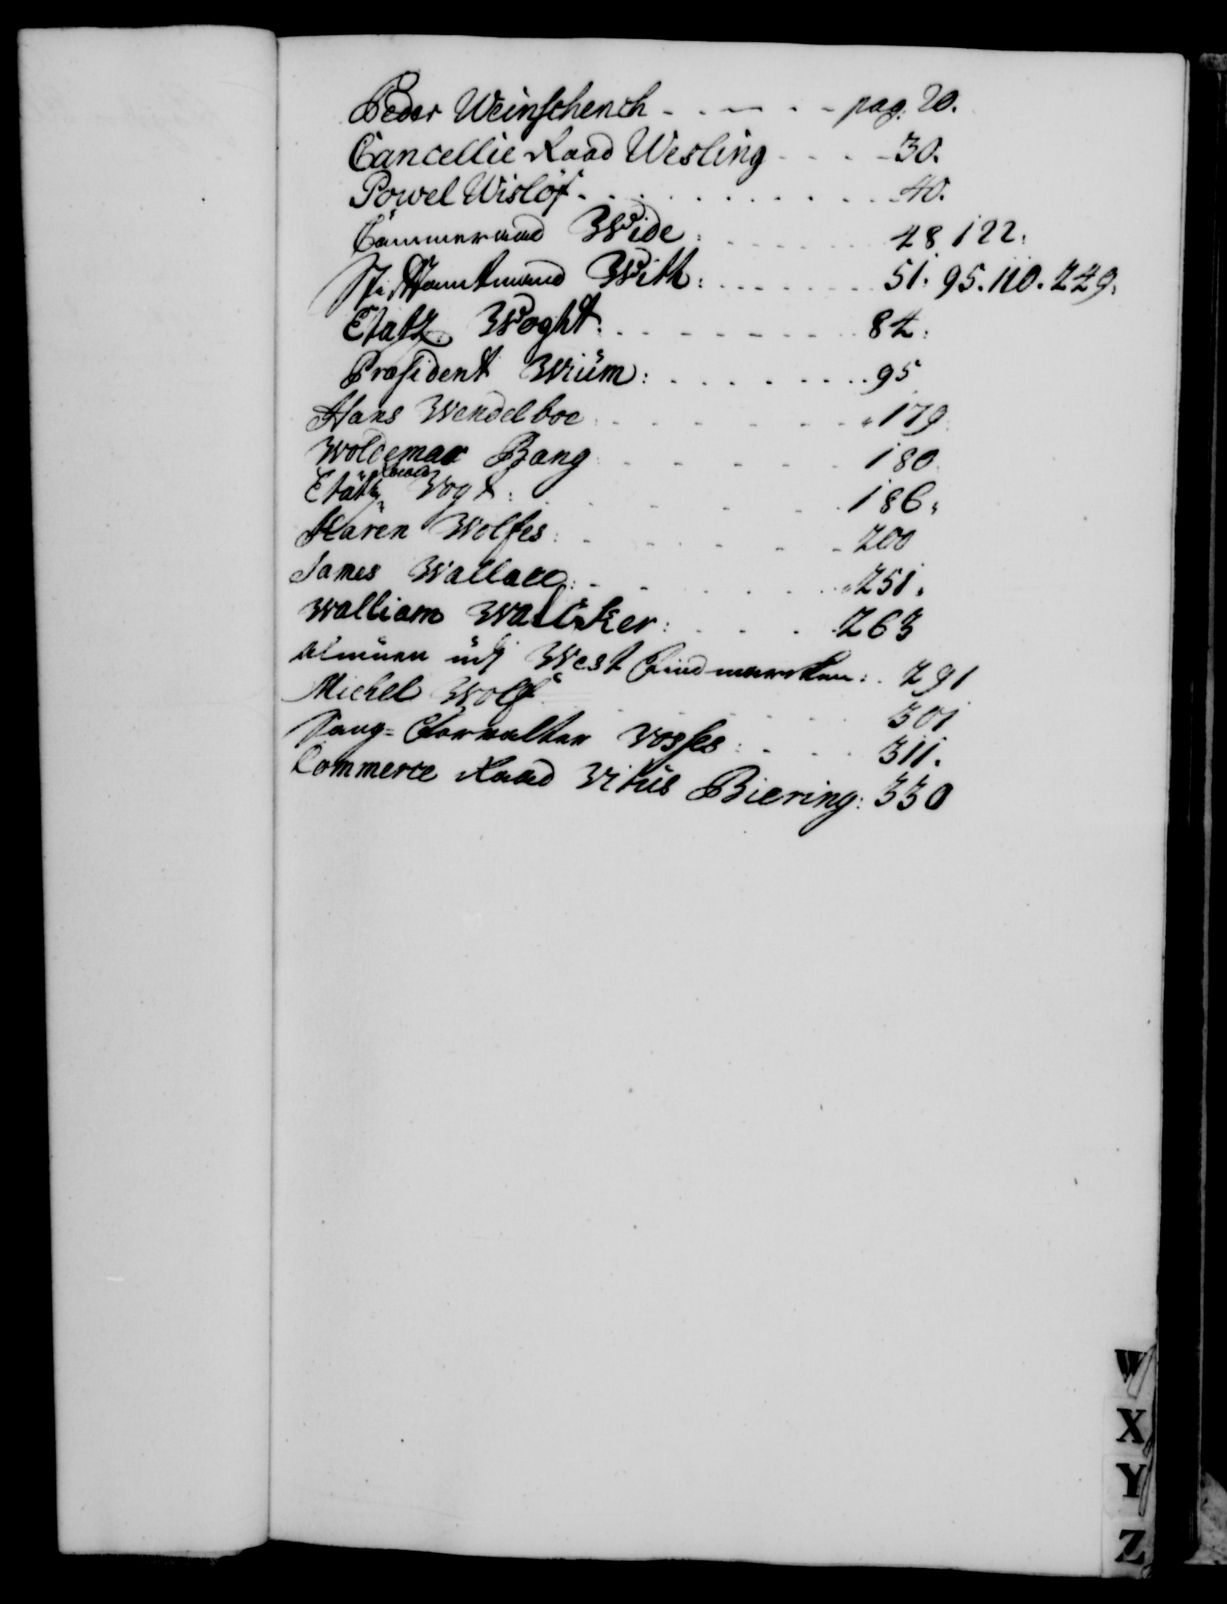 Peder Weinschench - - - - - pag: 20.
Cancellie Raad Wesling - - - - 30.
Powel Wisløf - . . . . . . . . . 40.
Cammerraad Wide : . . . . . . 48 122.
Stiftamtmand With : . . . . . . . 51. 95. 110. 229.
Etatz. Woght : . . . . . . . . 84.
Præsident Wium : . . . . . . . . 95
Hans Wendelboe : . . . . . . . 179
Woldemar Bang : . . . . . . 180
Etatz Raad Vogt : . . . . . . . 186.
Karen Wolfes : . . . . . . 200
James Wallace : . . . . . . . 251.
Walliam Walcker : . . . . 263
Almuen udj West Findmarcken : . 291
Michel Wolf . . . . . . . 301
Forvalter Vosses : . . . . 311.
Commerce Raad Vitus Biering : 330
W
X
Y
Z